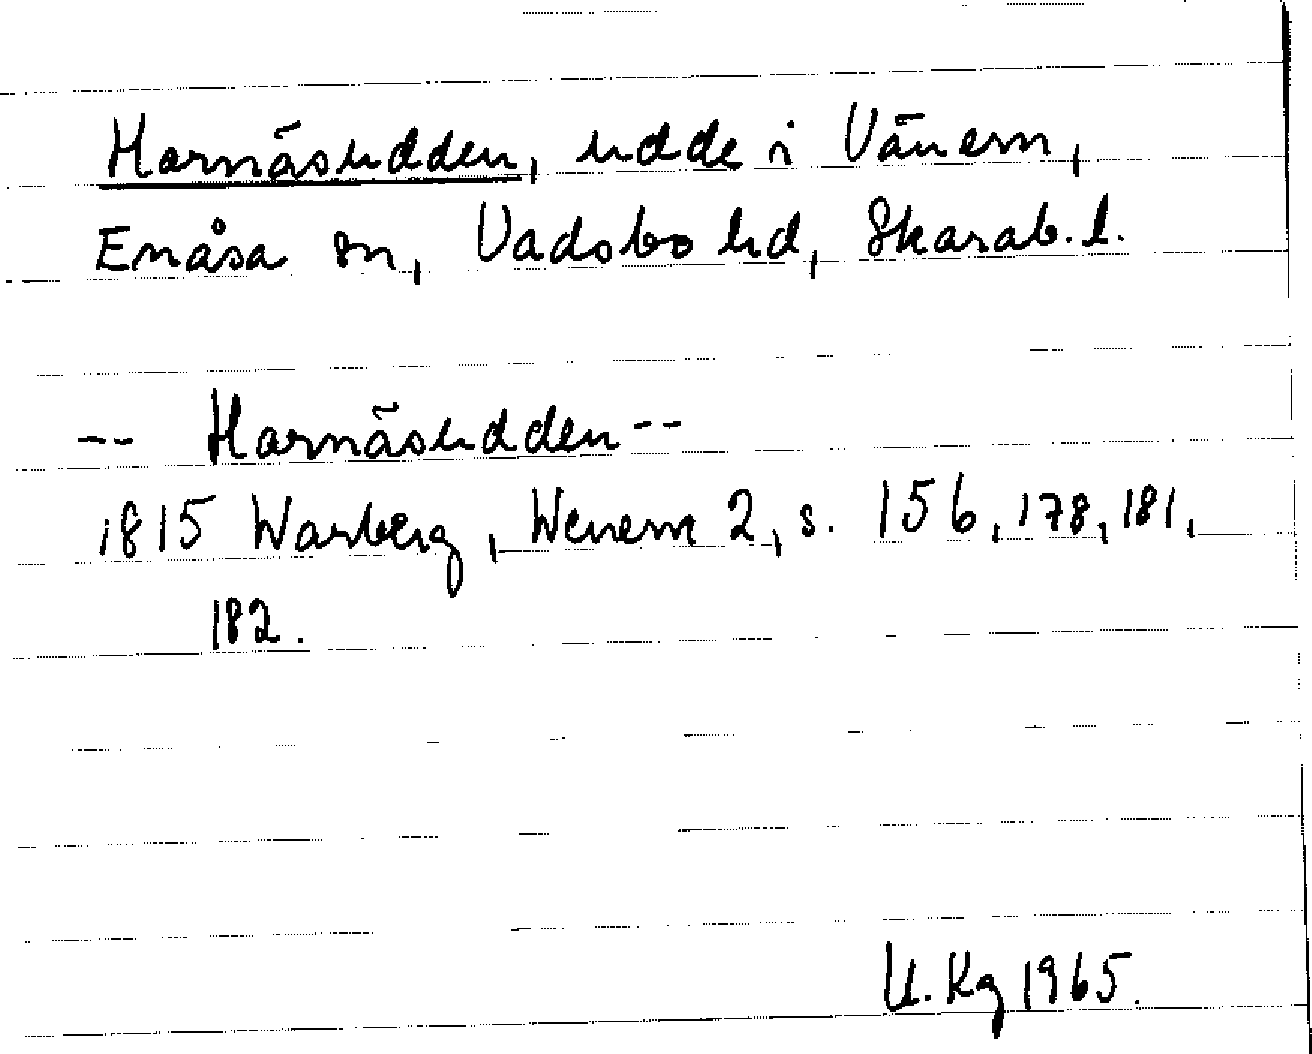 Harnäsudden, udde i Vänern,
Enåsa sn, Vadsbo hd, Skarab. l.
-- Harnäsudden --
1815 Warberg, Wenern 2, s. 156, 178, 181,
182.
U. Kg 1965.